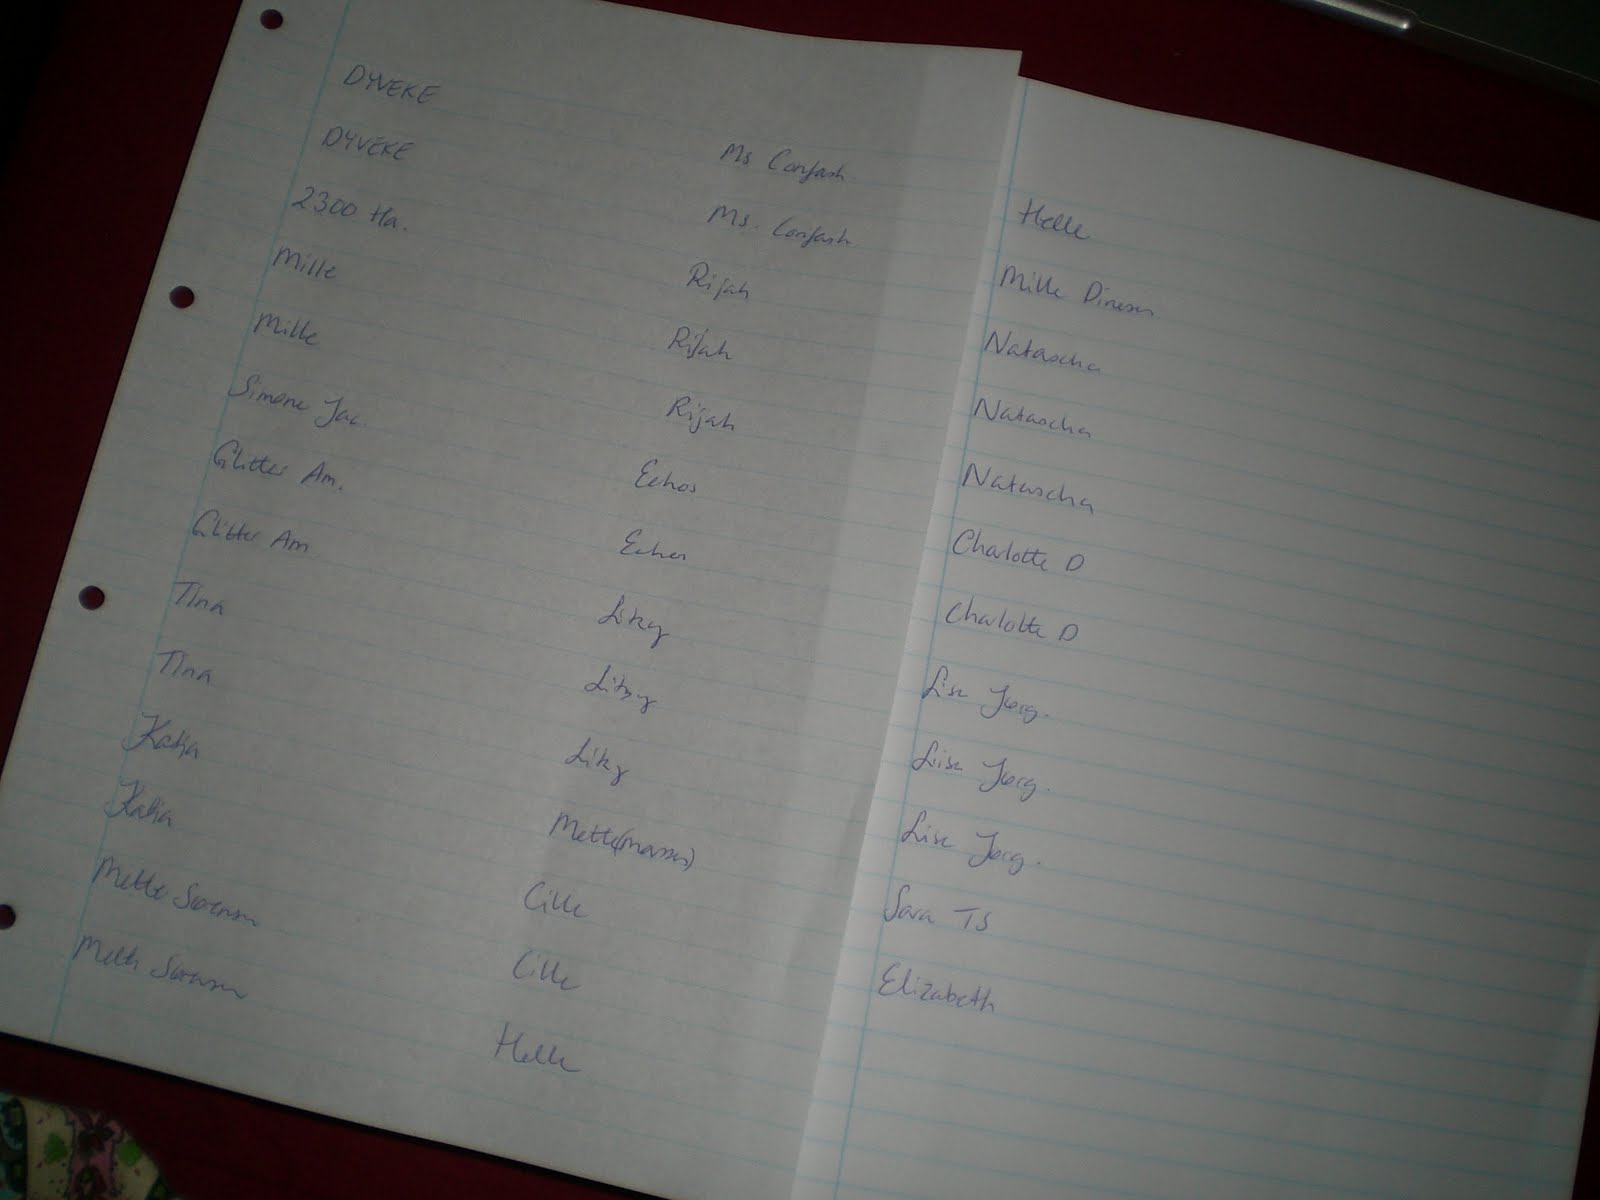 DYVEKE
DYVEKE
2300 Ha.
Mille
Mille
Simone Jac.
Glitter Am.
Glitter Am
Tina
Tina
Katja
Katja
Mette Sørensen
Mette Sørensen
Ms Confash
Ms. Confash
Rijah
Rijah
Rijah
Echos
Echos
Litzy
Litzy
Litzy
Mette
Cille
Cille
Helle
Helle
Mille Dinesen
Natascha
Natascha
Natascha
Charlotte D
Charlotte D
Lise Jørg.
Lise Jørg.
Lise Jørg.
Sara TS
Elizabeth